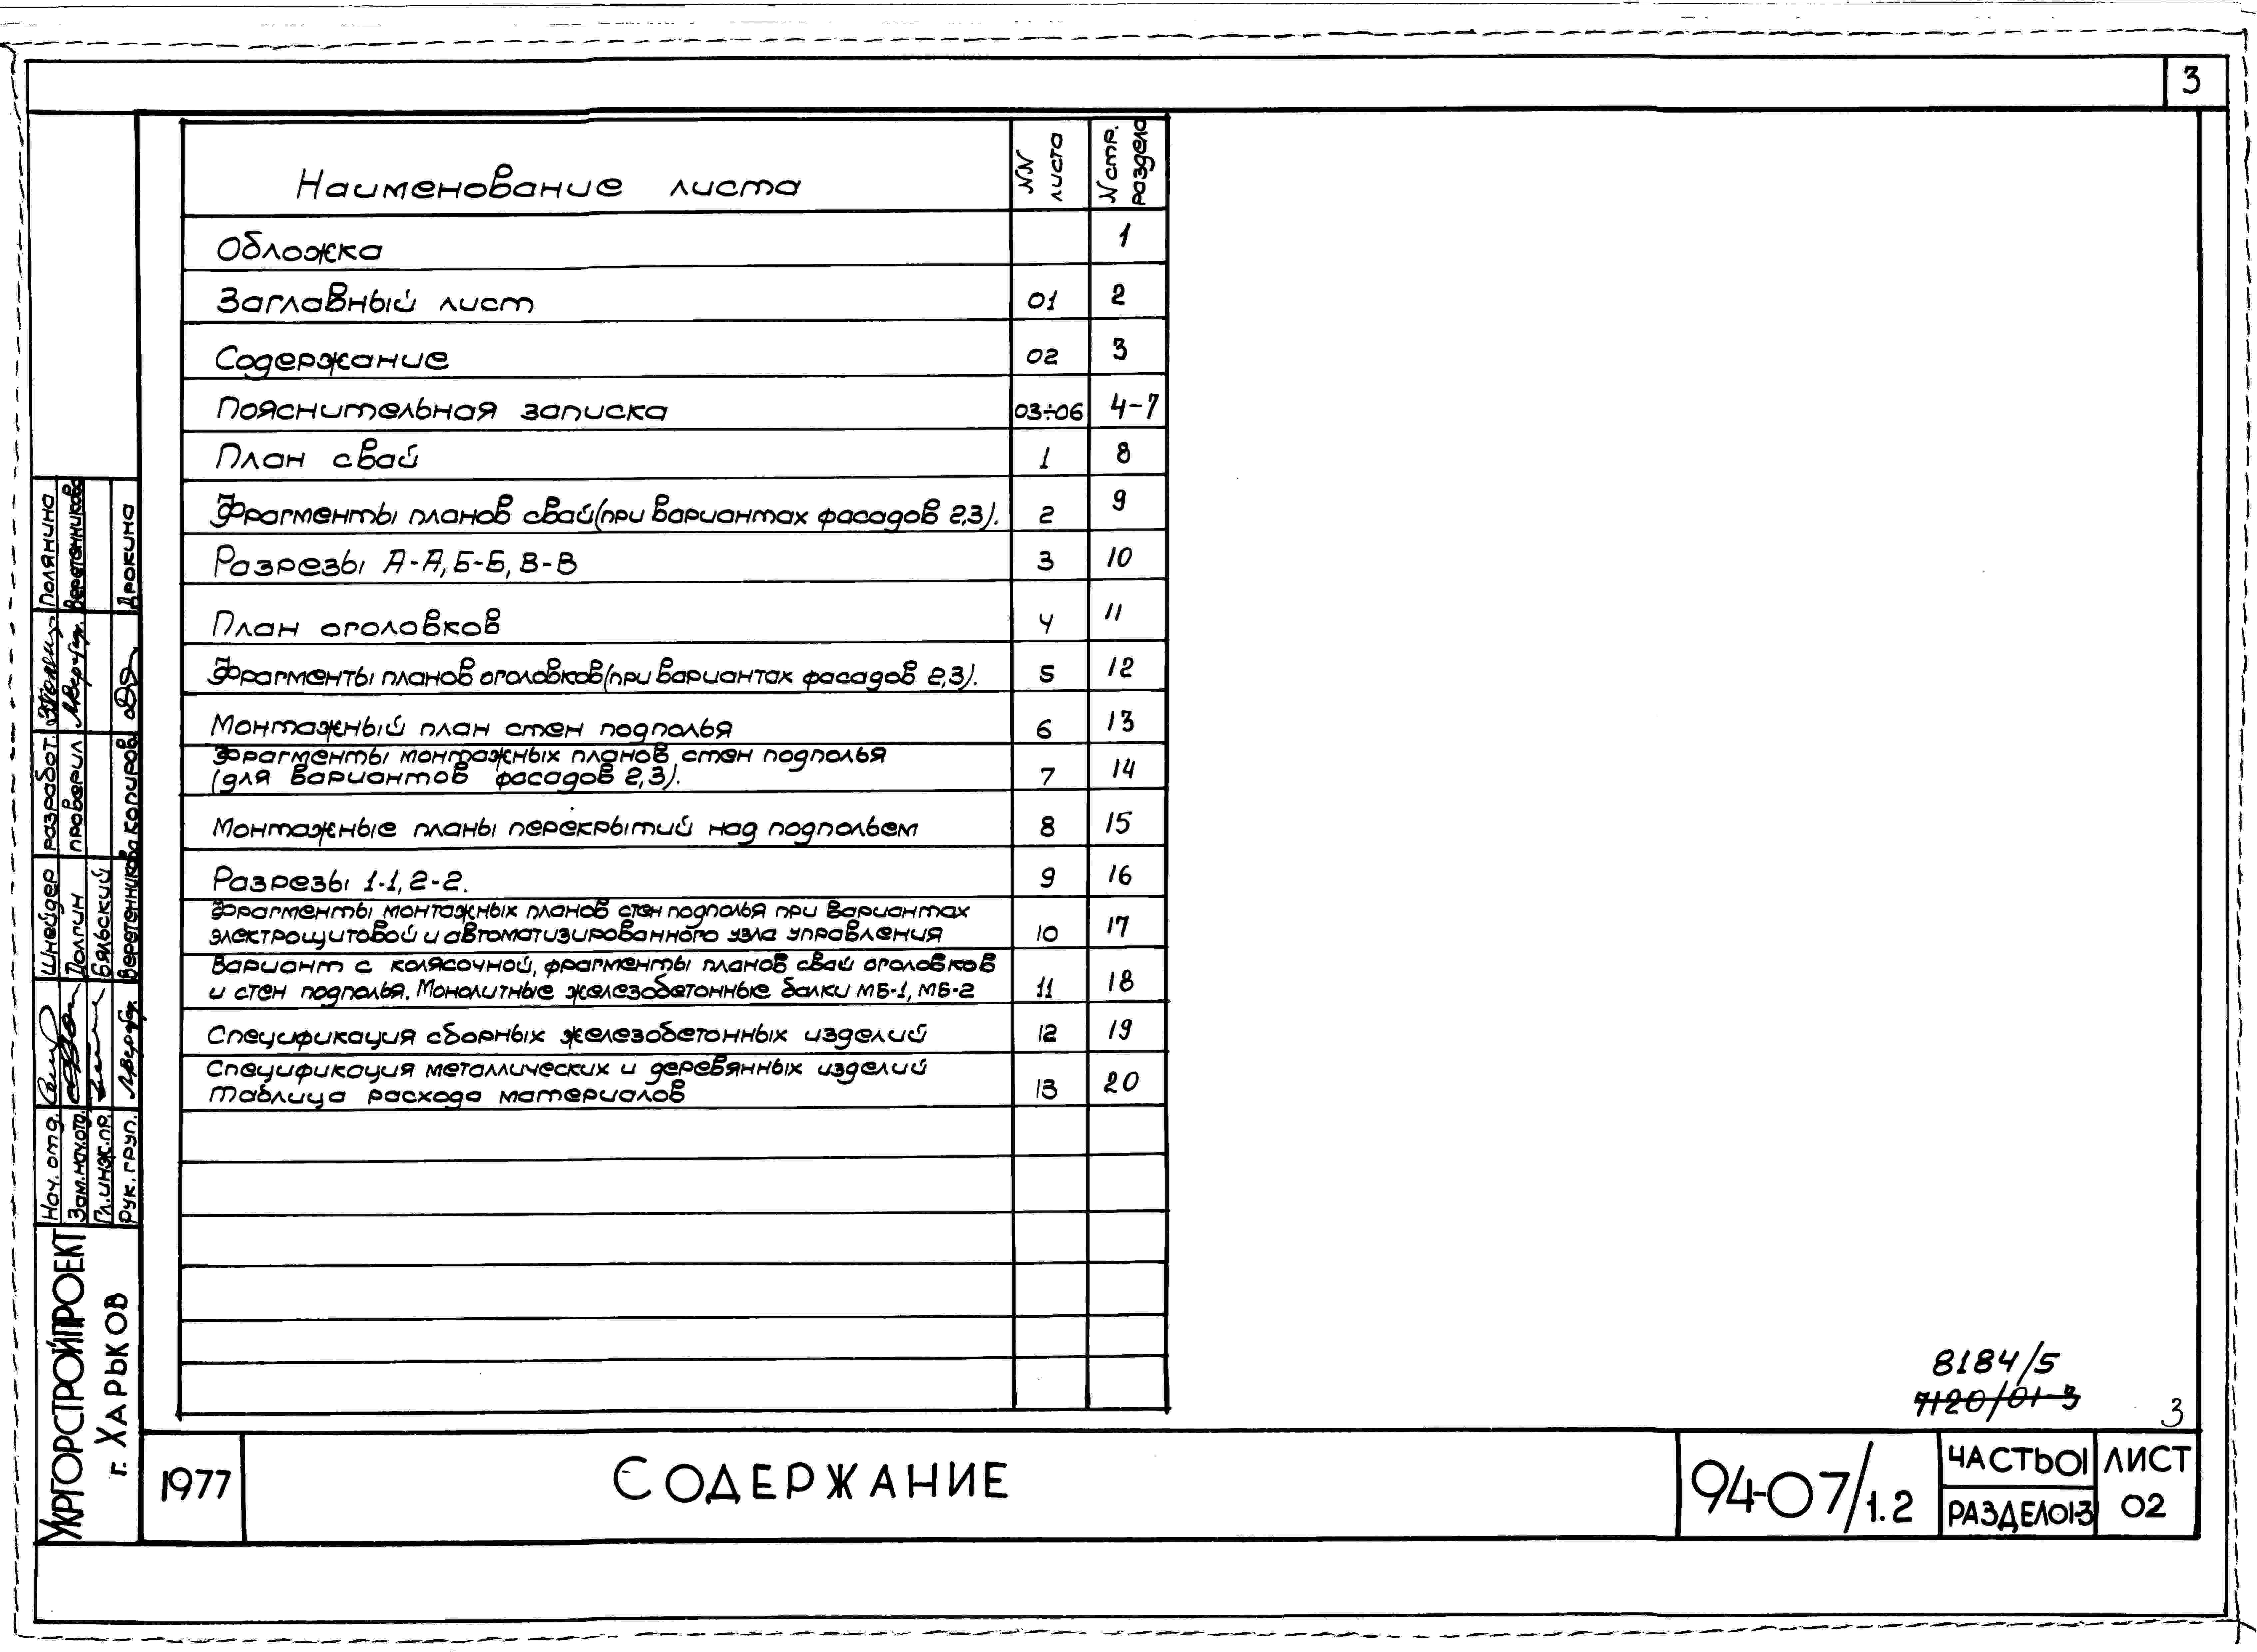 3
Наименование листа NN листа N стр. раздела
Обложка 1
Заглавный лист 01 2
Содержание 02 3
Пояснительная записка 03÷06 4-7
План свай 1 8
Фрагменты планов свай (при вариантах фасадов 2,3). 2 9
Разрезы А-А, Б-Б, В-В 3 10
План оголовков 4 11
Фрагменты планов оголовков (при вариантах фасадов 2,3). 5 12
Монтажный план стен подполья 6 13
Фрагменты монтажных планов стен подполья
(для вариантов фасадов 2,3). 7 14
Монтажные планы перекрытий над подпольем 8 15
Разрезы 1-1, 2-2. 9 16
Фрагменты монтажных планов стен подполья при вариантах
электрощитовой и автоматизированного узла управления 10 17
Вариант с колясочной, фрагменты планов свай оголовков
и стен подполья. Монолитные железобетонные балки МБ-1, МБ-2 11 18
Спецификация сборных железобетонных изделий 12 19
Спецификация металлических и деревянных изделий
Таблица расхода материалов 13 20
УКРГОРСТРОЙПРОЕКТ
г. ХАРЬКОВ
Нач. отд. Шнейдер разработ. Полянина
Зам.нач.отд. Долгин проверил Веретенникова
Гл.инж.пр. Бяльский
Рук. груп. Веретенникова копиров. Дрокина
8184/5
7120/01-3
3
1977
СОДЕРЖАНИЕ
94-07/1.2
ЧАСТЬ 01
РАЗДЕЛ 01-3
ЛИСТ
02